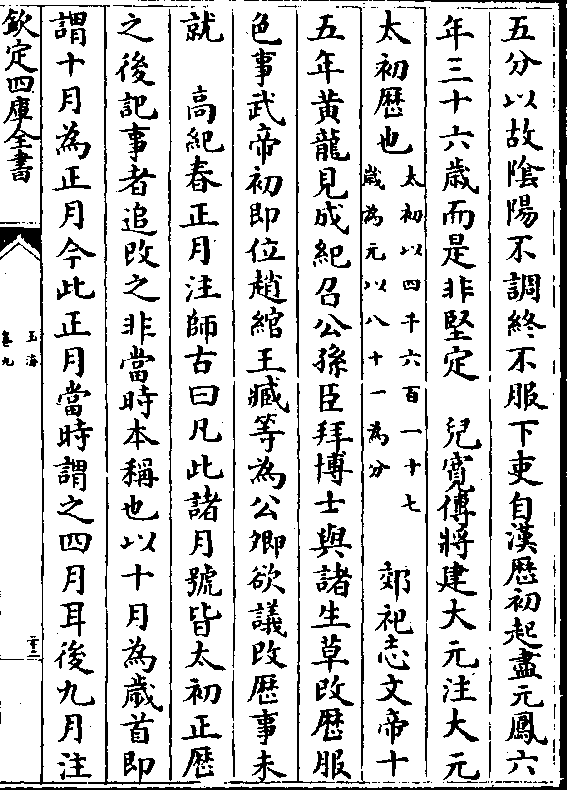 五分以故隂陽不調終不服下吏自漢厯初起盡元鳳六
年三十六歳而是非堅定　兒寛傳將建大元注大元
太初厯也太初以四千六百一十七歳為元以八十一為分　郊祀志文帝十
五年黃龍見成紀召公孫臣拜博士與諸生草改厯服
色事武帝初即位趙綰王臧等為公卿欲議改厯事未
就　高紀春正月注師古曰凡此諸月號皆太初正厯
之後記事者追改之非當時本稱也以十月為歳首即
謂十月為正月今此正月當時謂之四月耳後九月注
欽定四庫全書
玉海
卷九
二十三